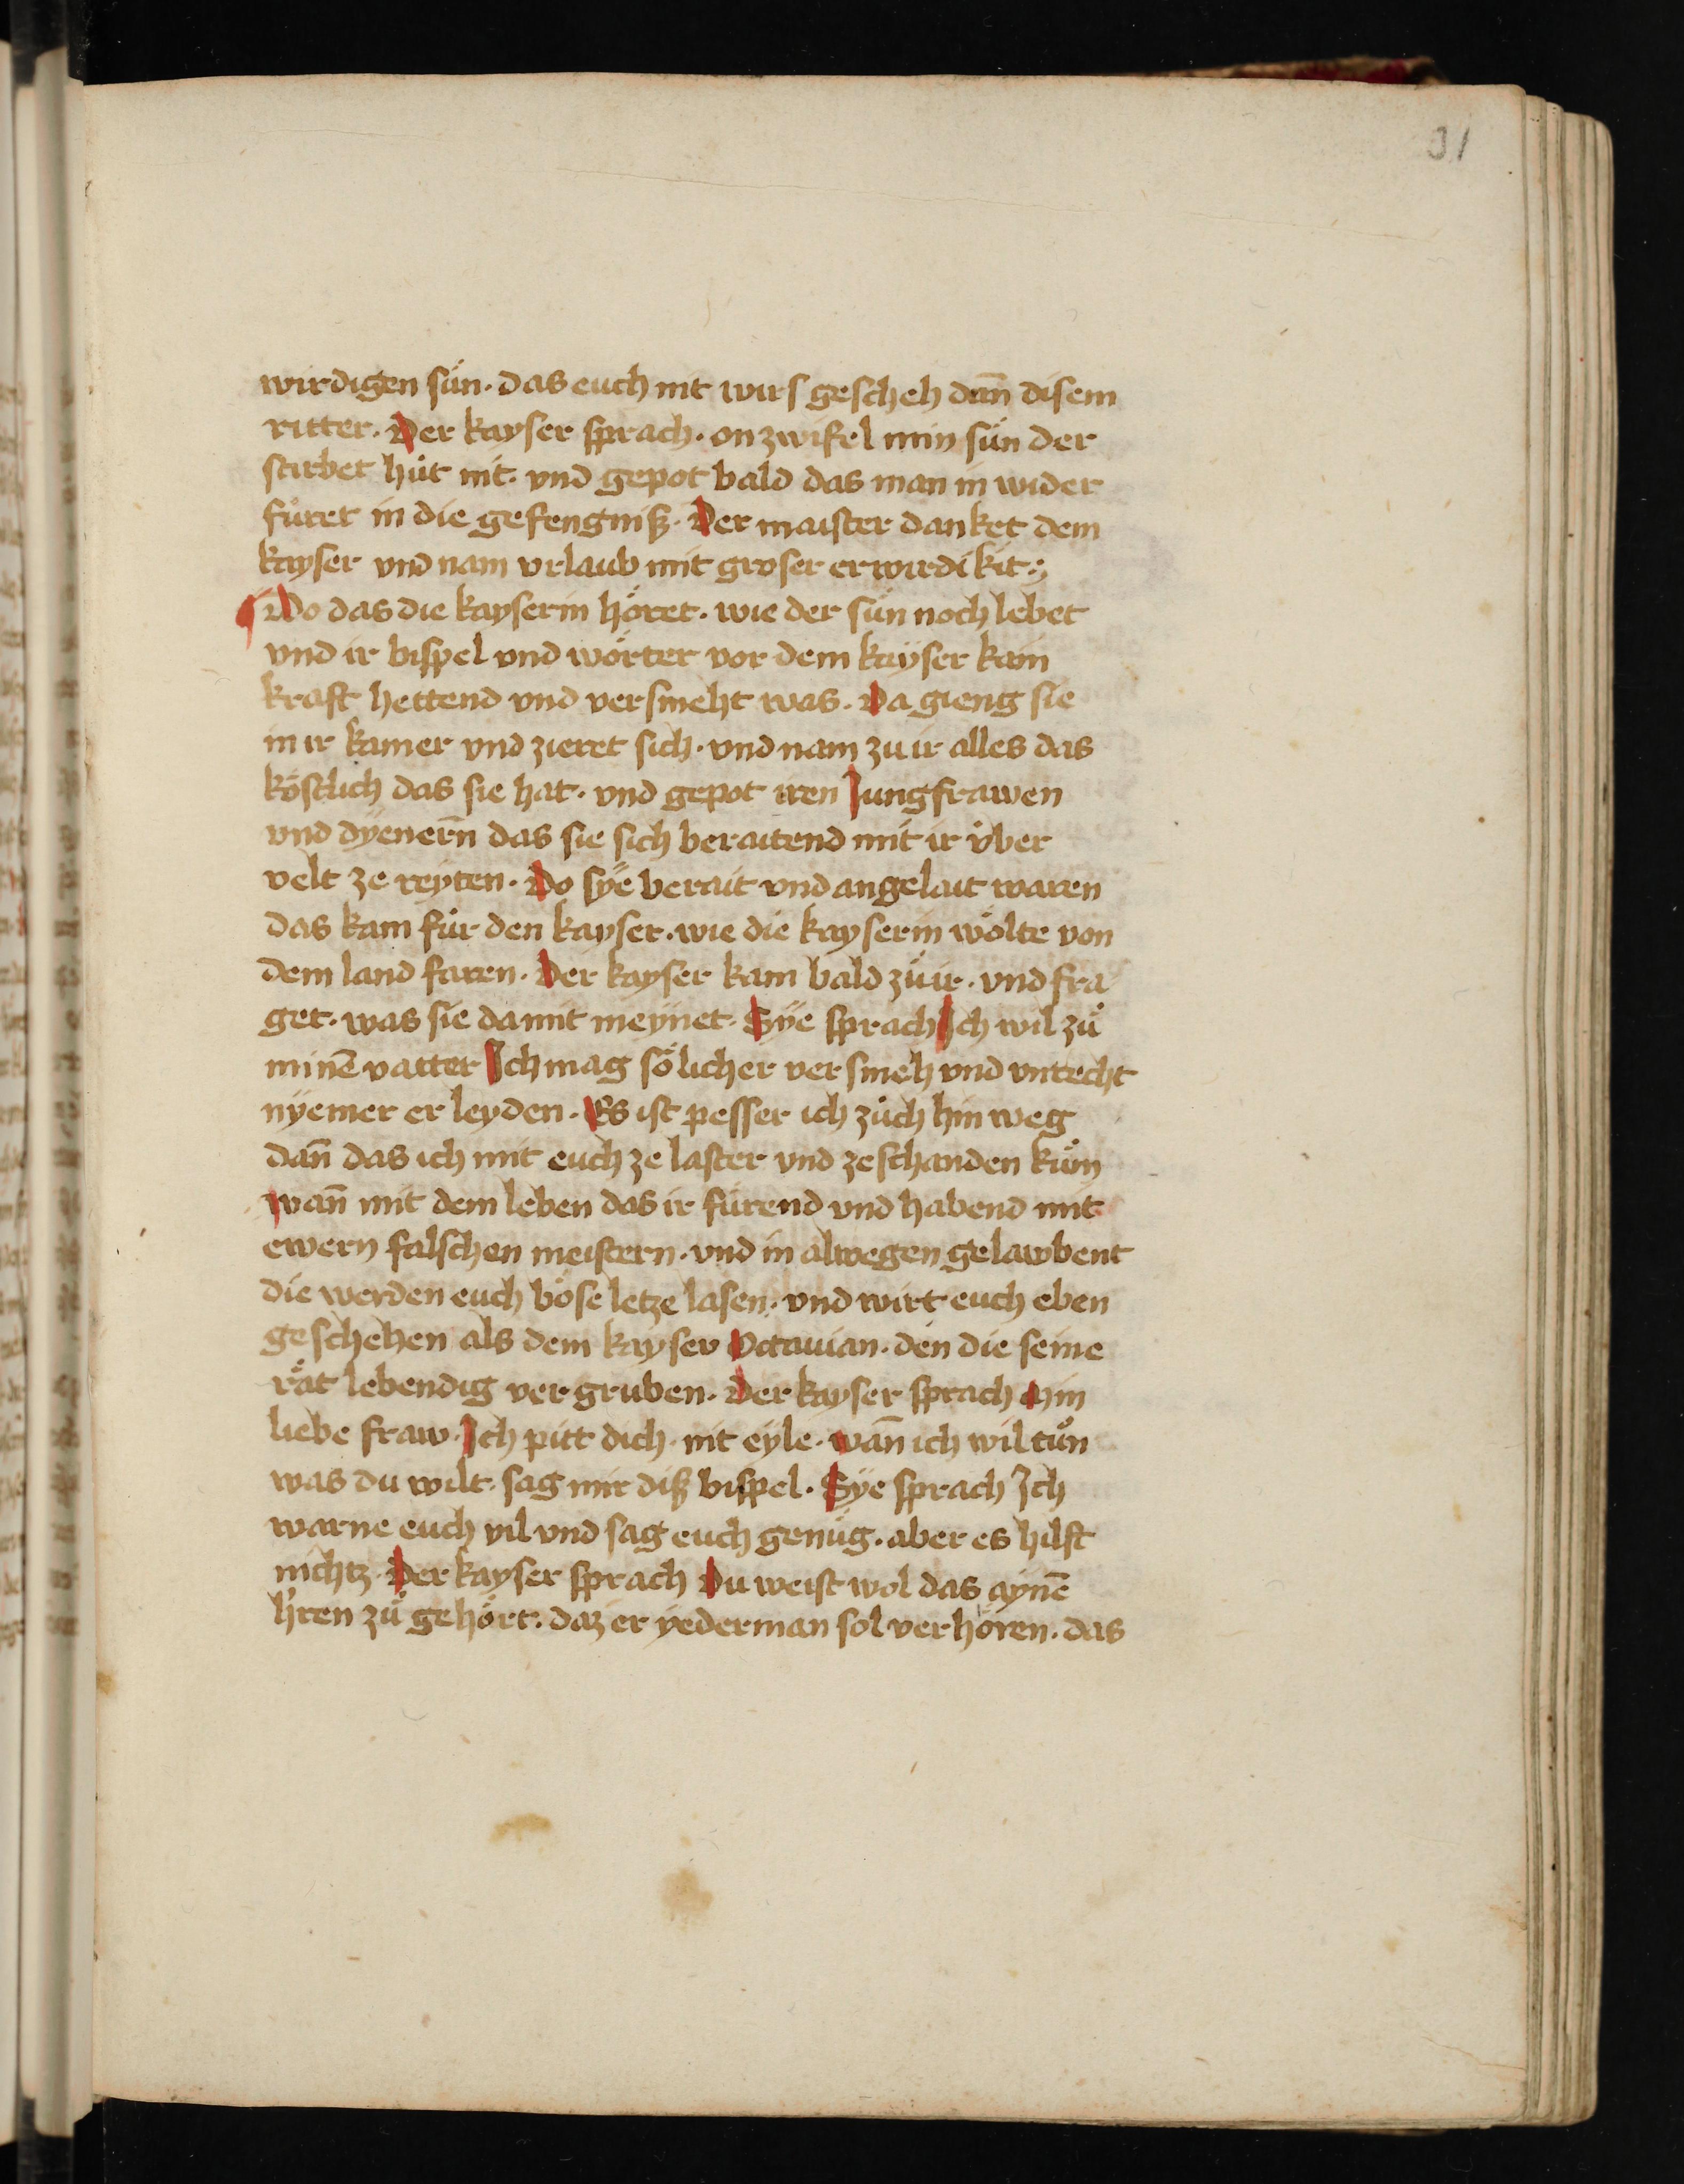 31
wirdigen sün· das euch nit wirs gescheh dañ disem
ritter· Der kayser sprach· on zwifel min sün der
stirbet hüt nit· vnd gepot bald das man in wider
füret in die gefengniß· Der maister danket dem
kayser vnd nam vrlaub mit groser erwirdikit:
¶ Do das die kayserin höret· wie der sün noch lebet
vnd ir bispel vnd wörter vor dem kayser kain
kraft hettend vnd versmeht was· Da gieng sie
in ir kamer vnd zieret sich· vnd nam zu ir alles das
köstlich das sie hat· vnd gepot iren Jungfrawen
vnd dÿenerñ das sie sich beraitend mit ir über
velt ze reÿten· Do sÿe berait vnd angelait waren
das kam für den kayser· wie die kayserin wölte von
dem land faren· Der kayser kam bald zů ir· vnd fra
get· was sie damit meÿnet· Sÿe sprach Ich wil zů
minē vatter Ich mag sölicher versmeh vnd vnrecht
nÿemer erleyden· Es ist pesser ich züch hin weg
dañ das ich mit euch ze laster vnd ze schanden küm
wañ mit dem leben das ir fürend vnd habend mit
ewern falschen meistern· vnd in alwegen gelawbent
die werden euch böse letze lasen· vnd wirt euch eben
geschehen als dem kayser Octauian· den die seine
rät lebendig vergruben· Der kayser sprach Min
liebe fraw· Ich pitt dich· nit eÿle· wañ ich wil tůn
was du wilt· sag mir diß bispel· Sÿe sprach Ich
warne euch vil vnd sag euch genůg· aber es hilft
nichtz· Der kayser sprach Du weist wol das aÿnē
h'ren zů gehört· daz er ÿederman sol verhören· das